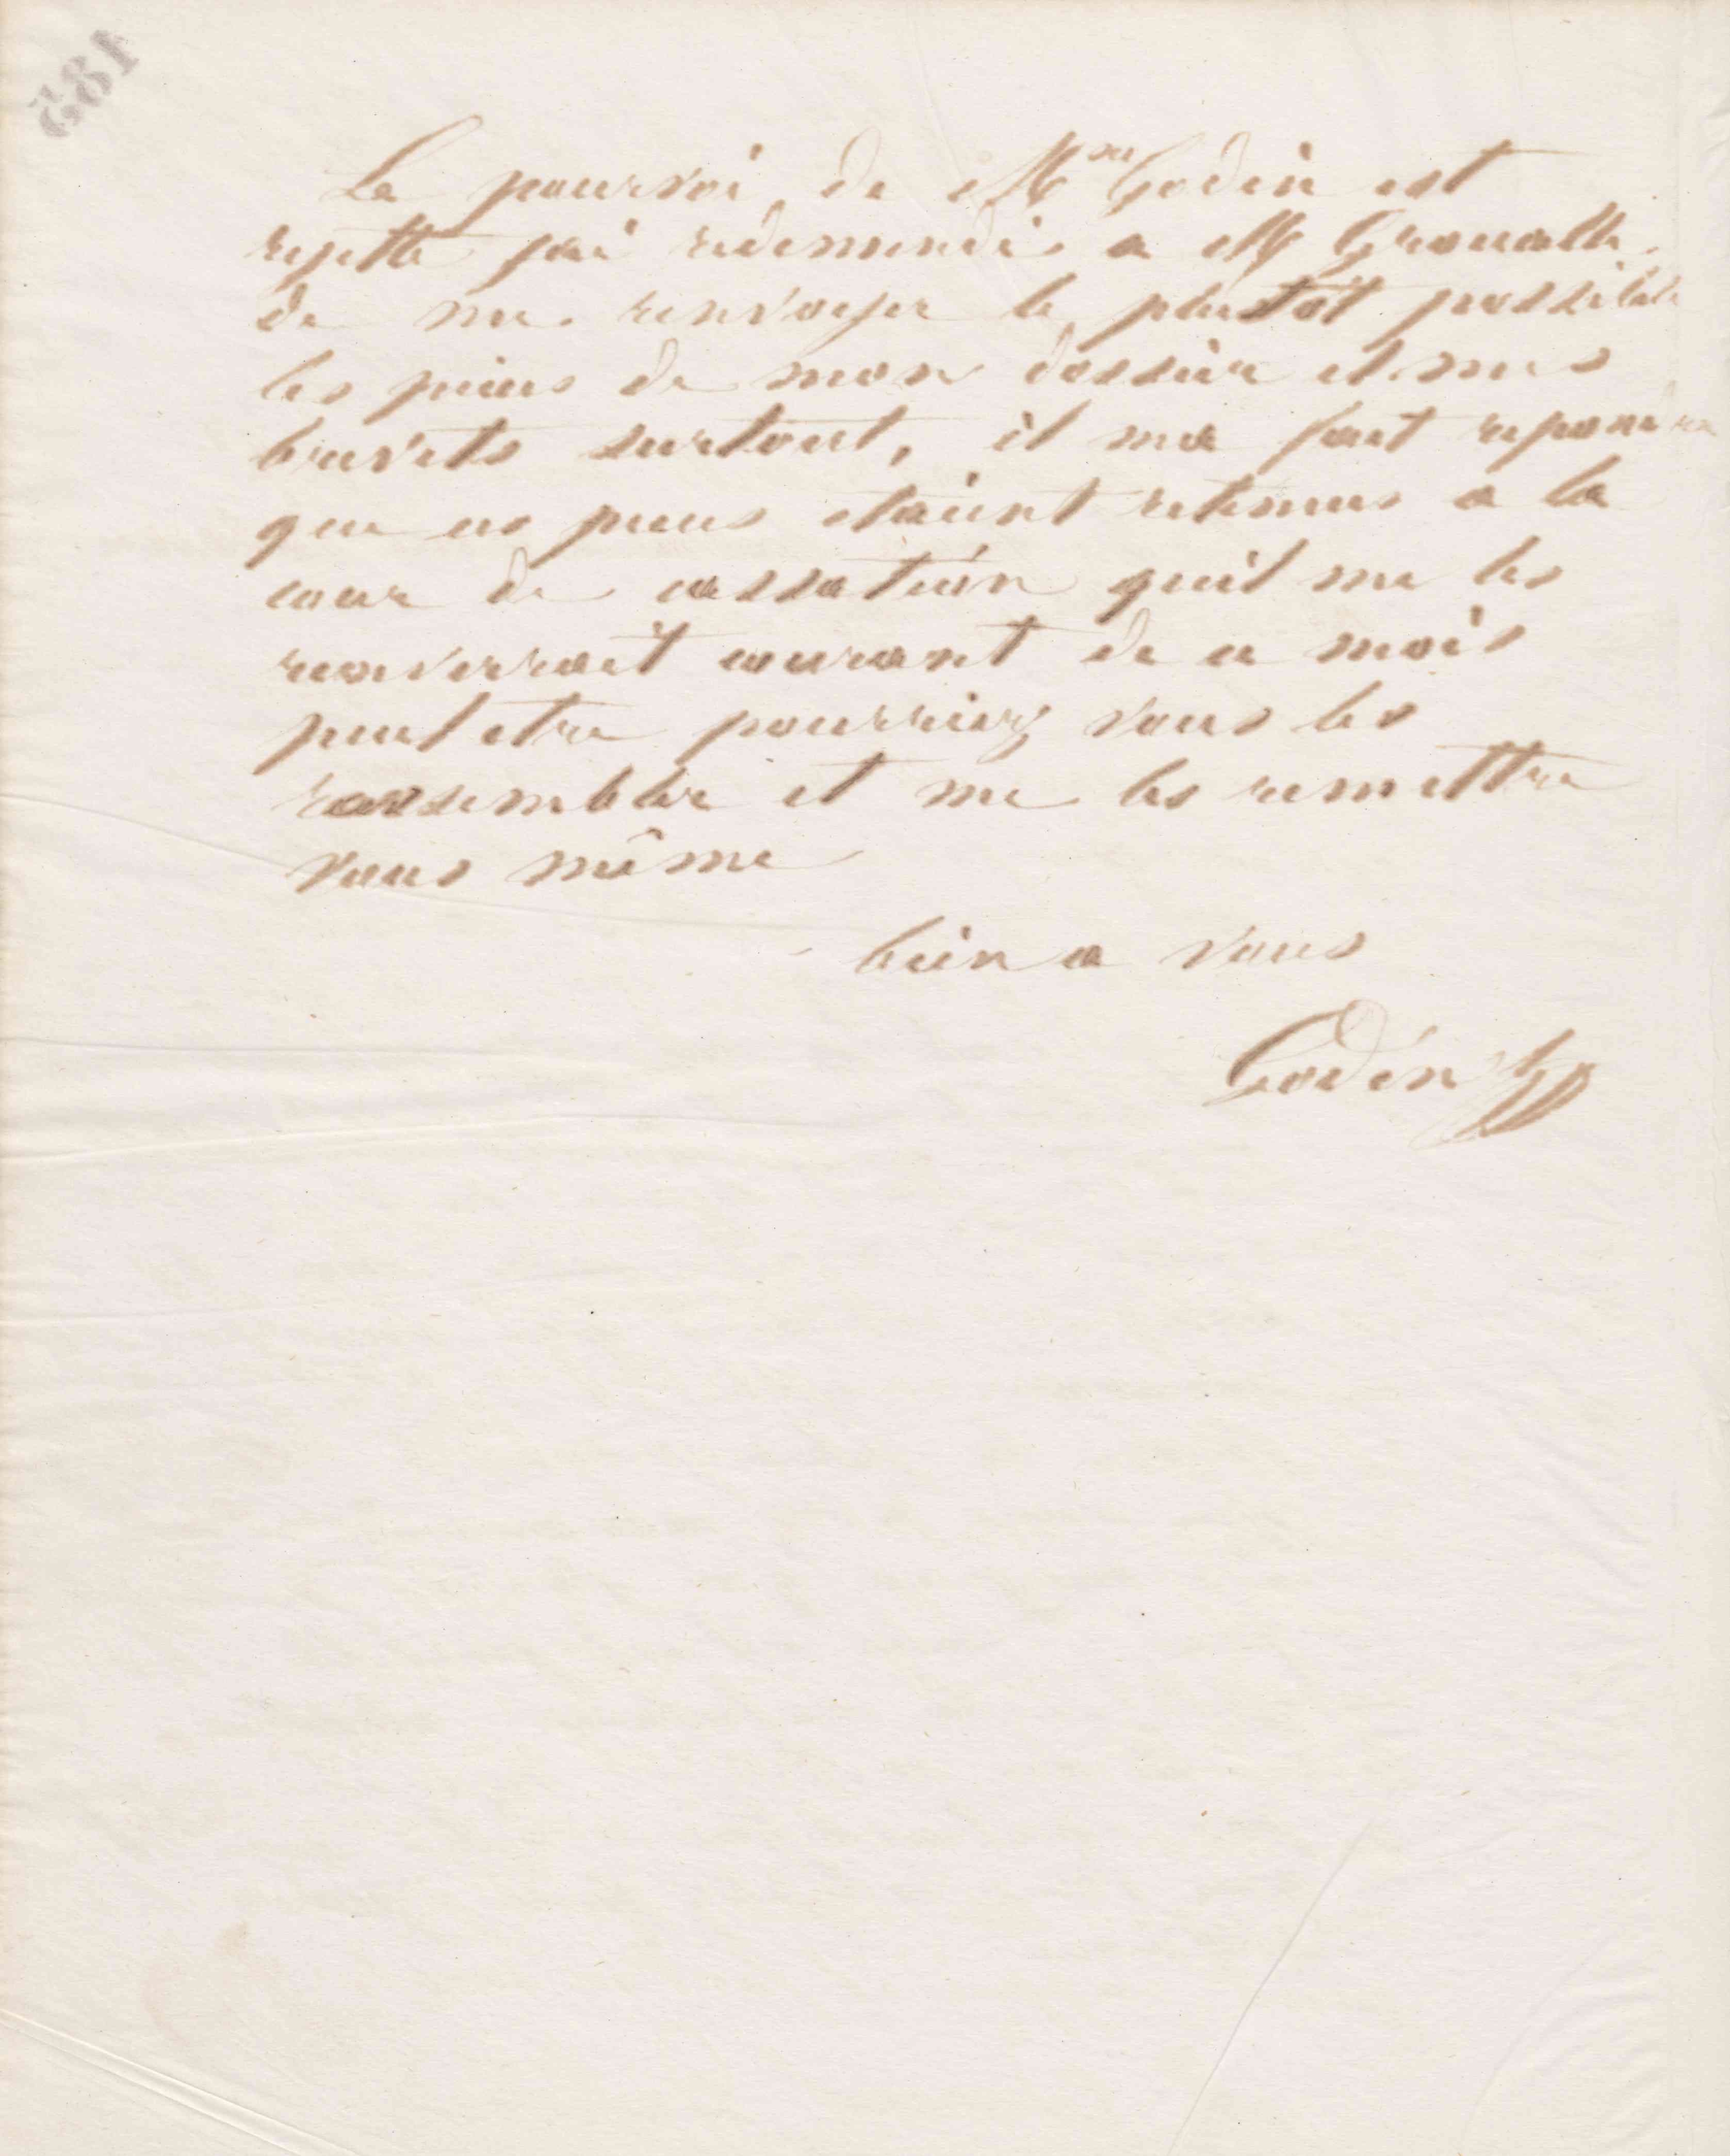 185
Le pourvoi de Mme Godin est
rejetté j'ai redemandé a M Groualle
de me renvoyer le plustôt possible
les pieces de mon dossier et mes
brevets surtout, il ma fait repondre
que ces pieces etaient retenues a la
cour de cassation quil me les
renverrait courant de ce mois
peut etre pourriez vous les
rassembler et me les remettre
vous même
bien a vous
Godin